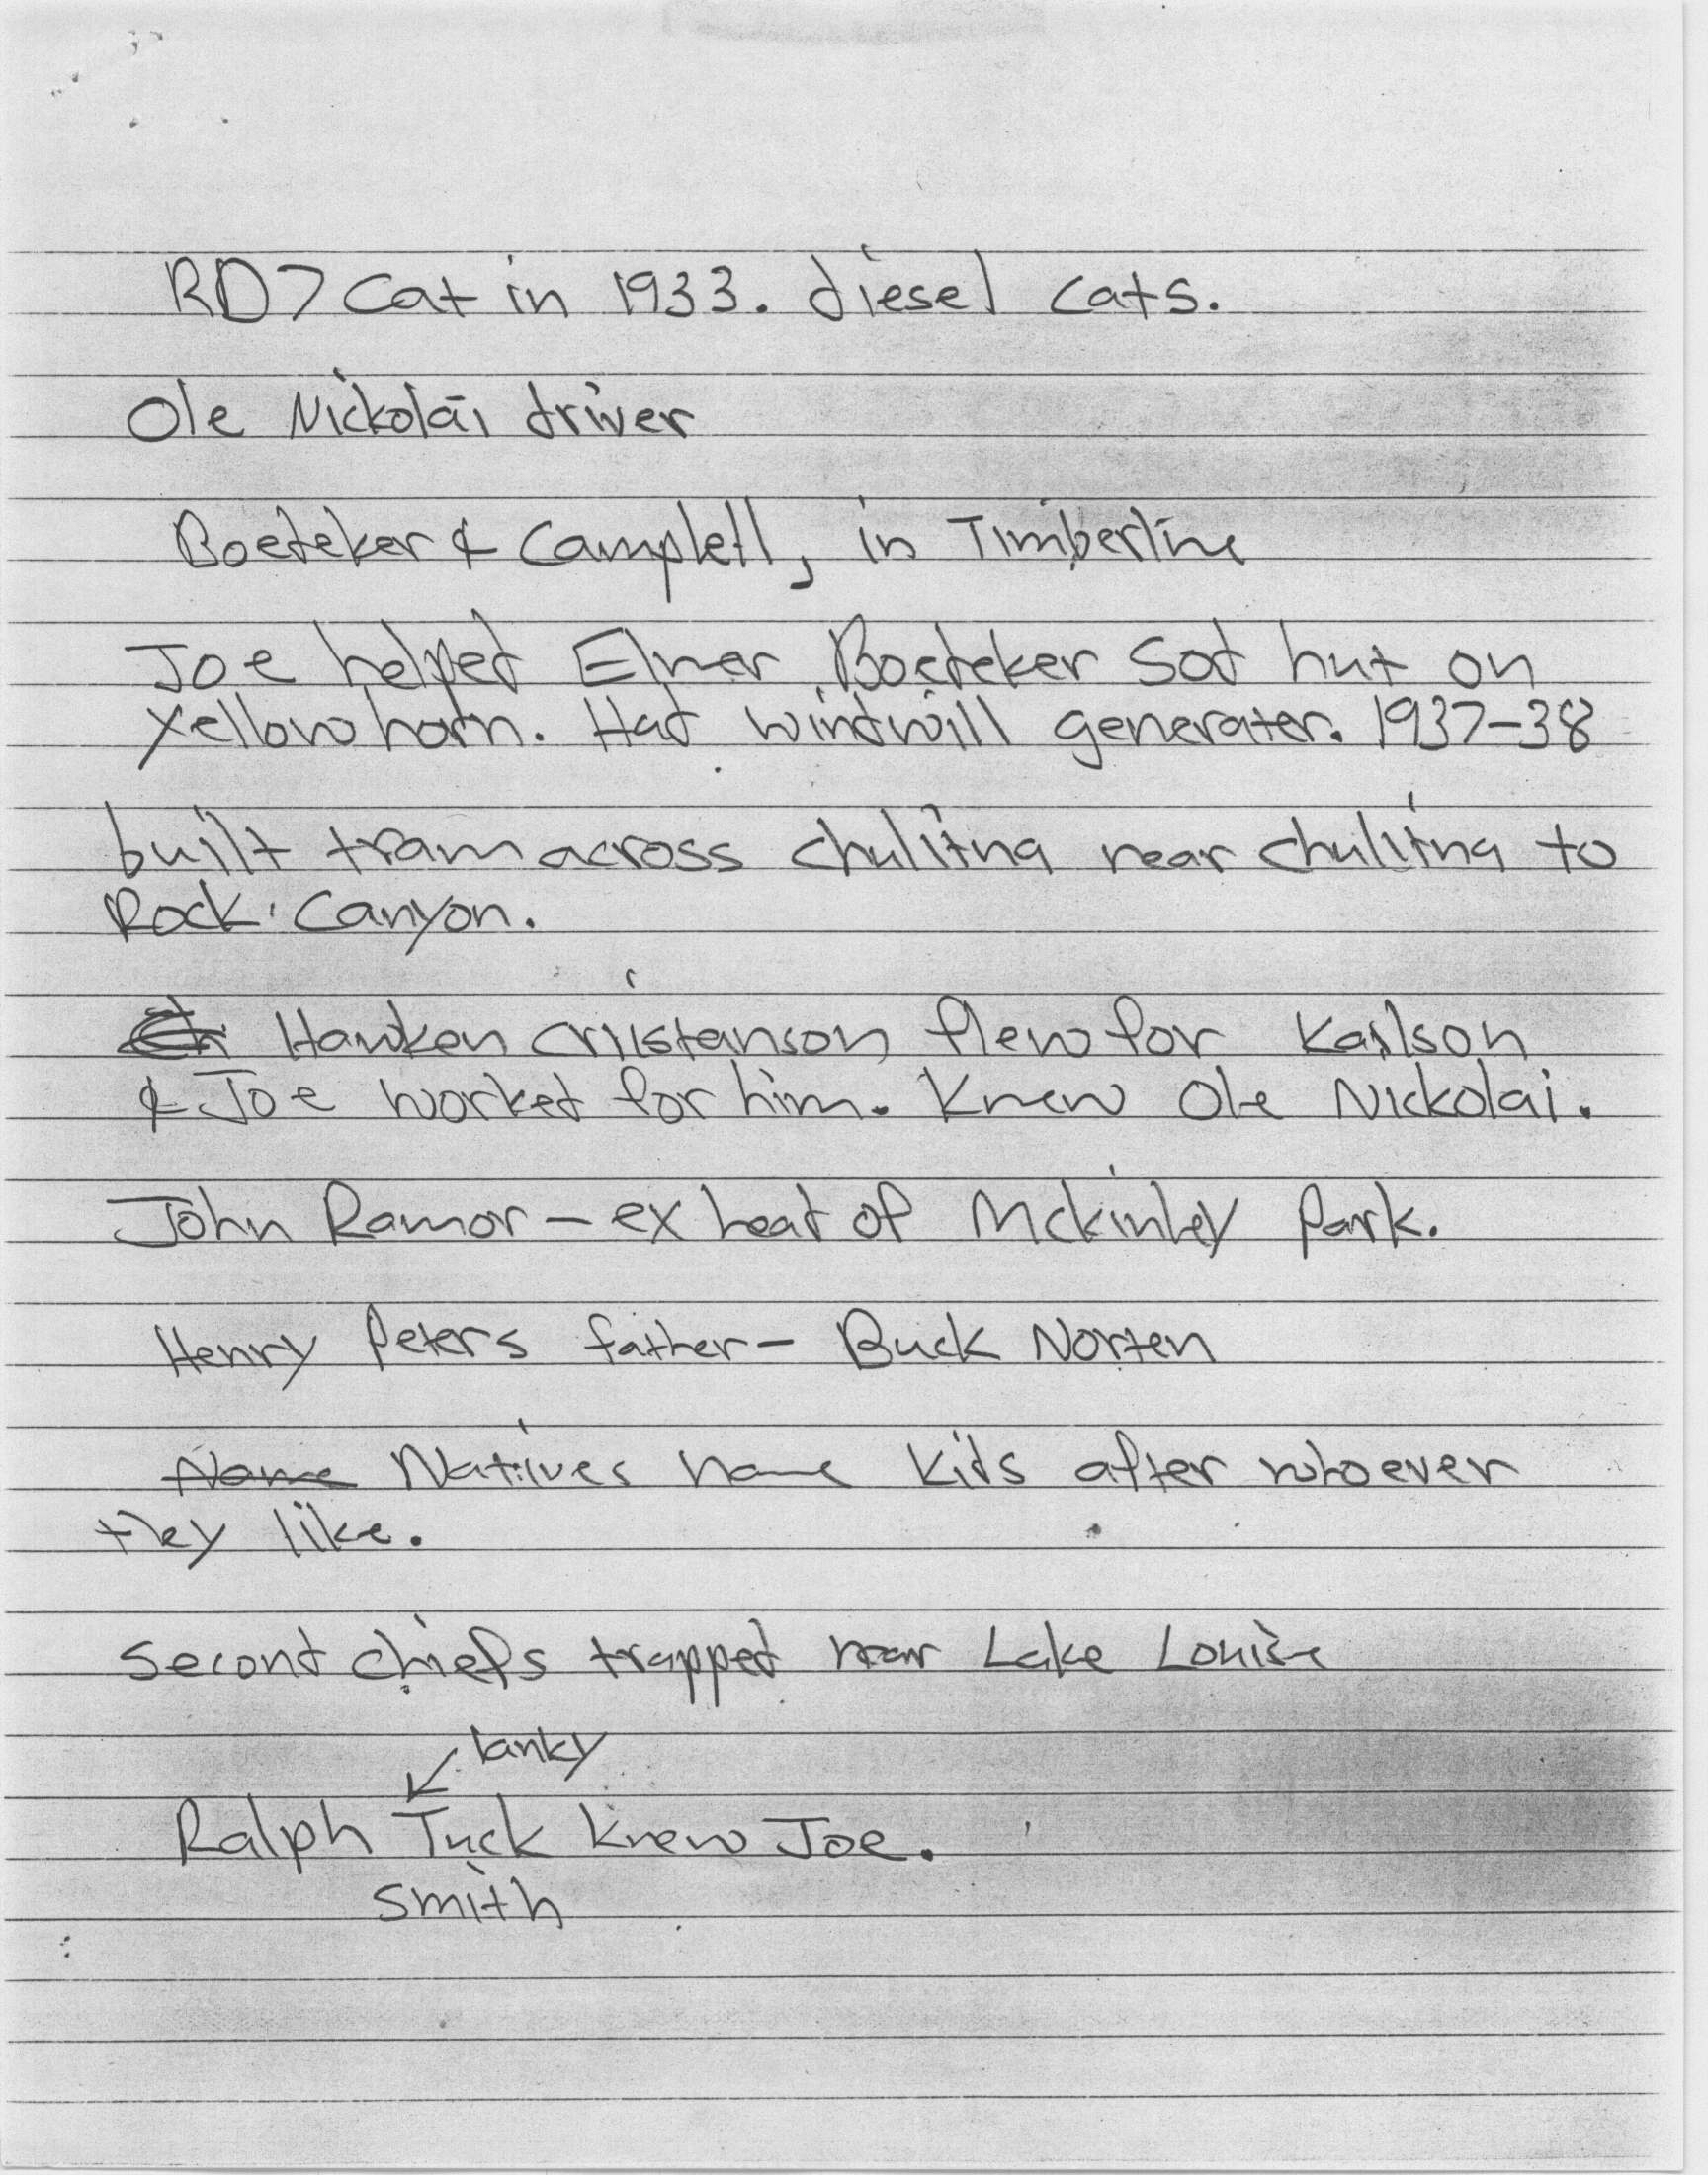 RD7 Cat in 1933. diesel cats.
Ole Nickolai driver
Boedeker & Campbell, in Timberline
Joe helped Elmer Boedeker sod hut on
Yellowhorn. Had windmill generater. 1937-38
built tram across chulitna near chulitna to
Rock Canyon.
Hawken Cristanson flew for Karlson
& Joe worked for him. Knew Ole Nickolai.
John Ramor - ex head of Mckinley Park.
Henry Peters father - Buck Norten
Name Natives name kids after whoever
they like.
Second chiefs trapped near Lake Louise
lanky
Ralph Tuck knew Joe.
Smith